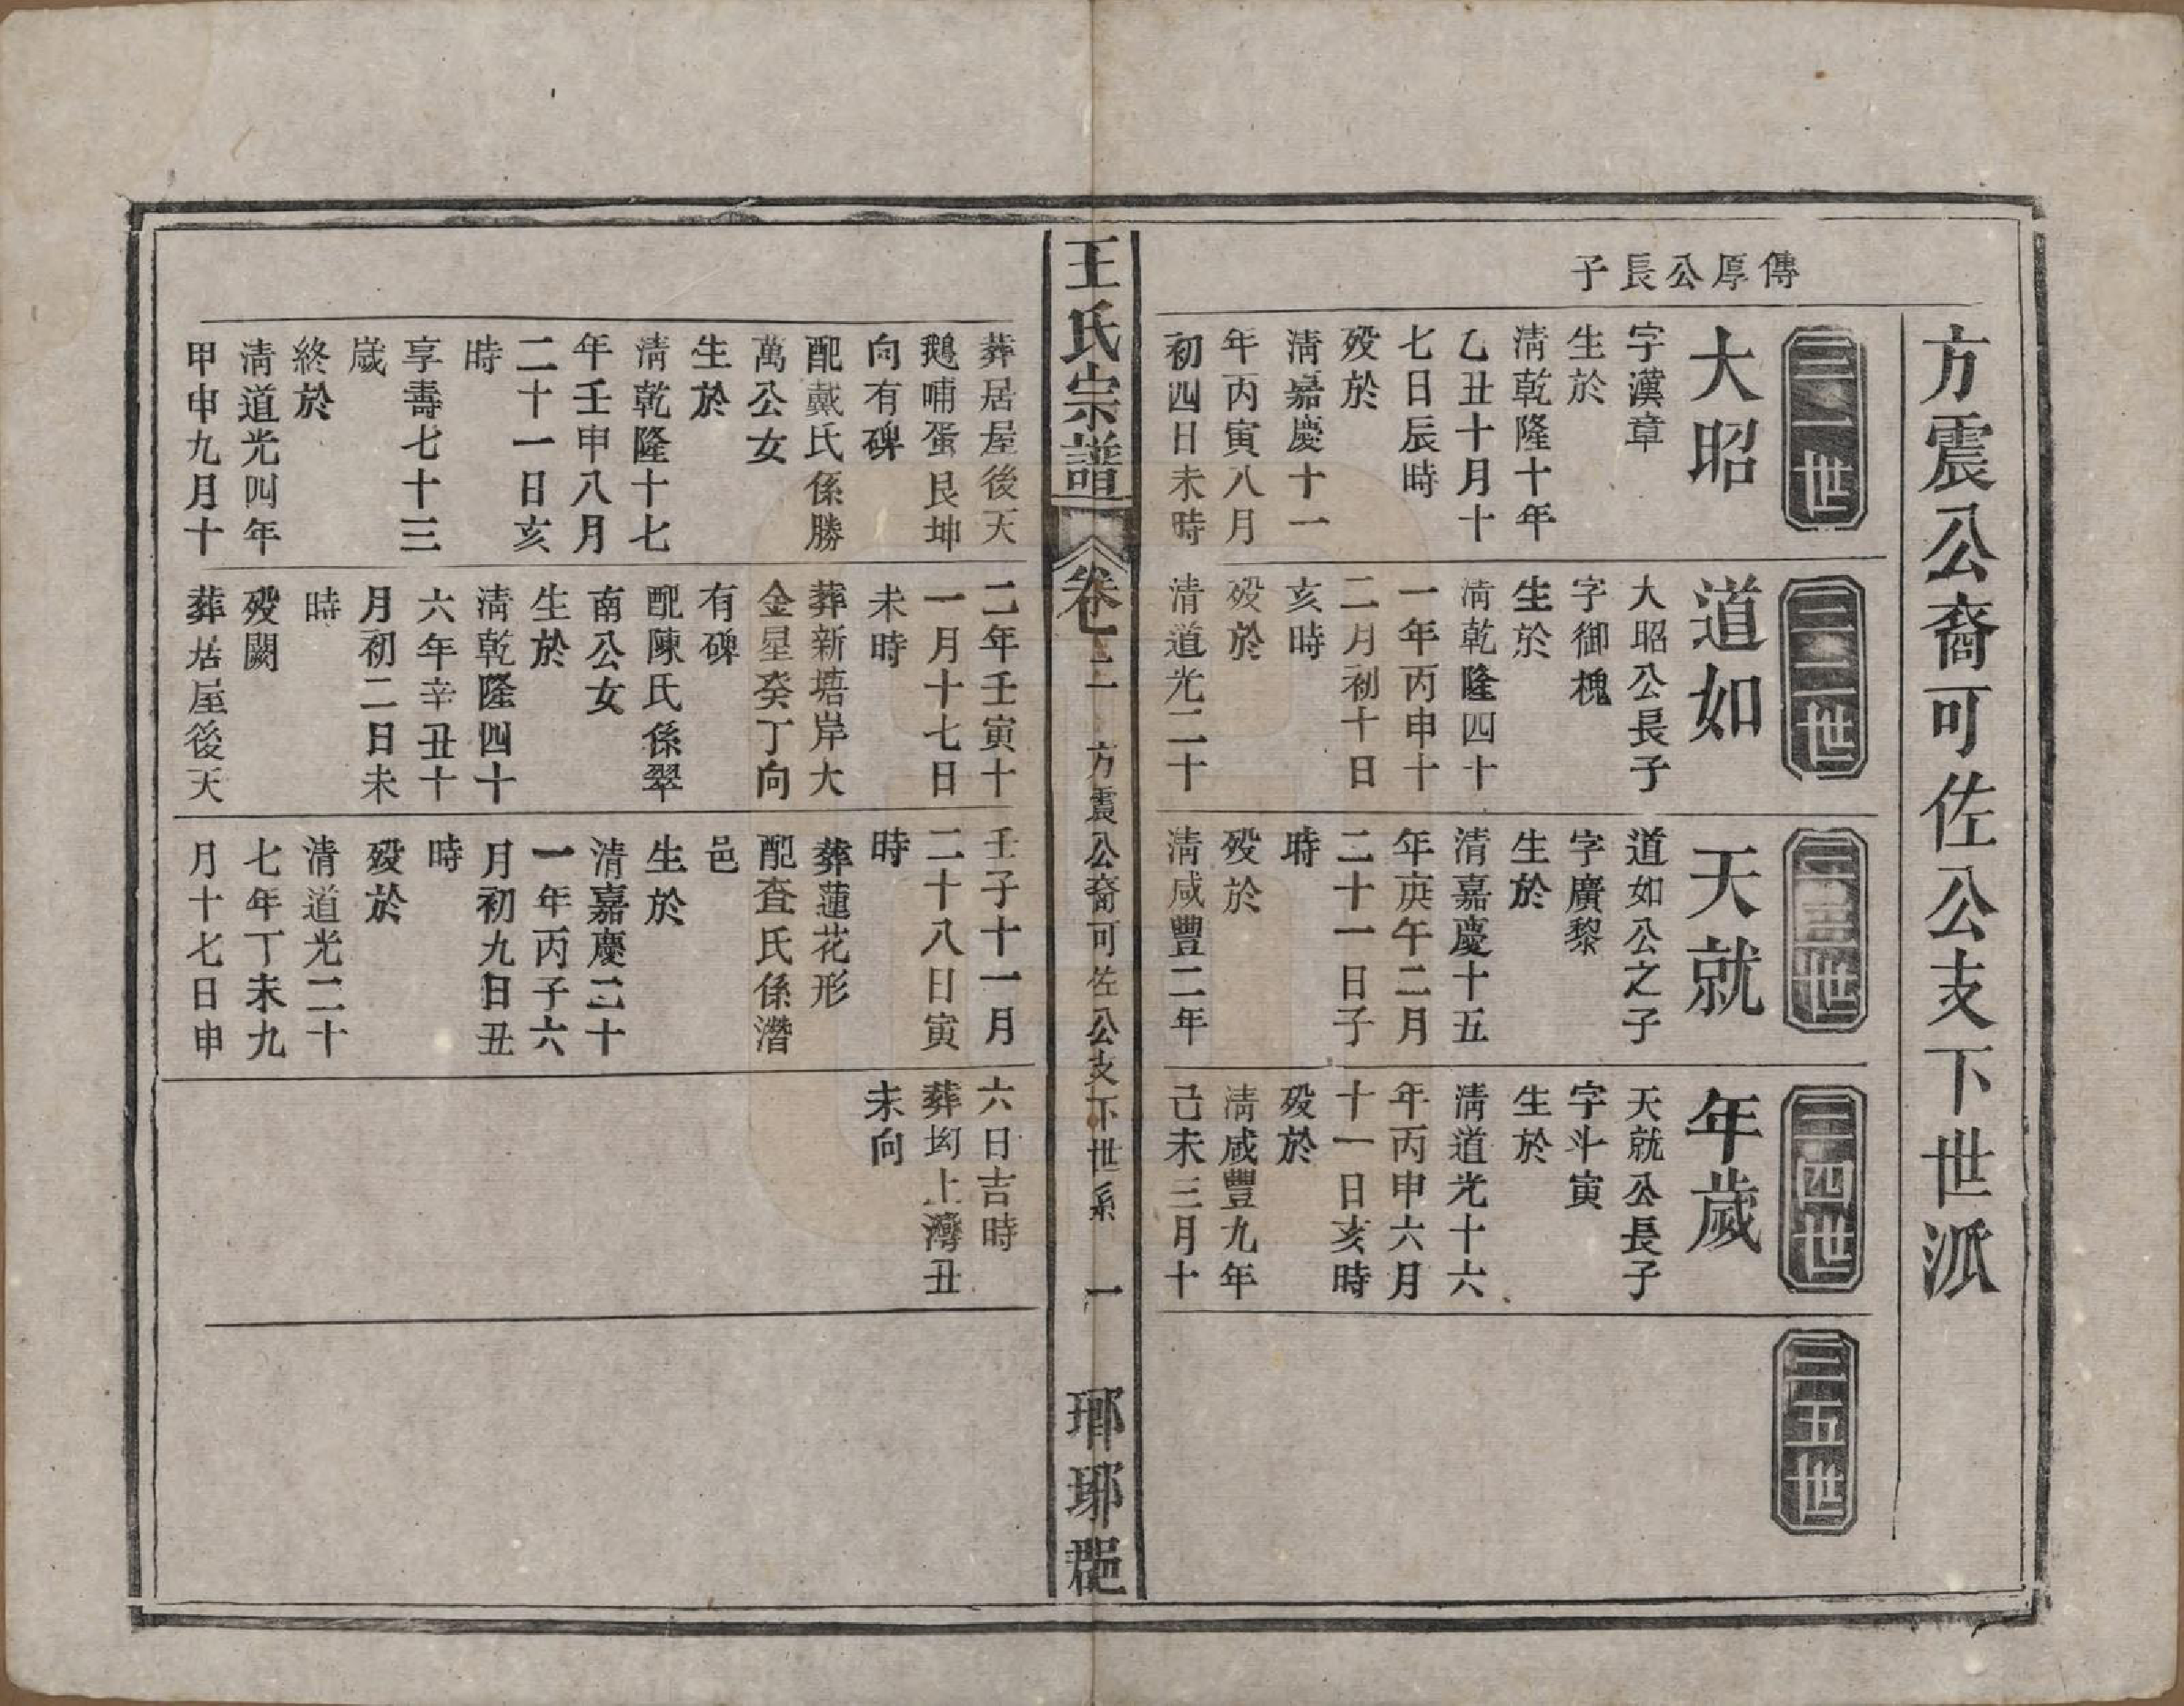 方震公裔可佐公支下世派
傳厚公長子
三一世
大昭
字漢章
生於
清乾隆十年
乙丑十月十
七日辰時
殁於
清嘉慶十一
年丙寅八月
初四日未時
三二世
道如
大昭公長子
字御槐
生於
清乾隆四十
一年丙申十
二月初十日
亥時
殁於
清道光二十
三三世
天就
道如公之子
字廣黎
生於
清嘉慶十五
年庚午二月
二十一日子
時
殁於
清咸豐二年
三四世
年歲
天就公長子
字斗寅
生於
清道光十六
年丙申六月
十一日亥時
殁於
清咸豐九年
己未三月十
三五世
王氏宗譜
卷二
方震公裔可佐公支下世系
一
瑯琊郡
葬居屋後天
鵝哺蛋艮坤
向有碑
配戴氏係勝
萬公女
生於
清乾隆十七
年壬申八月
二十一日亥
時
享壽七十三
歲
終於
清道光四年
甲申九月十
二年壬寅十
一月十七日
未時
葬新塘岸大
金星癸丁向
有碑
配陳氏係翠
南公女
生於
清乾隆四十
六年辛丑十
月初二日未
時
殁闕
葬居屋後天
壬子十一月
二十八日寅
時
葬蓮花形
配查氏係潛
邑
生於
清嘉慶二十
一年丙子六
月初九日丑
時
殁於
清道光二十
七年丁未九
月十七日申
六日吉時
葬㘭上灣丑
未向